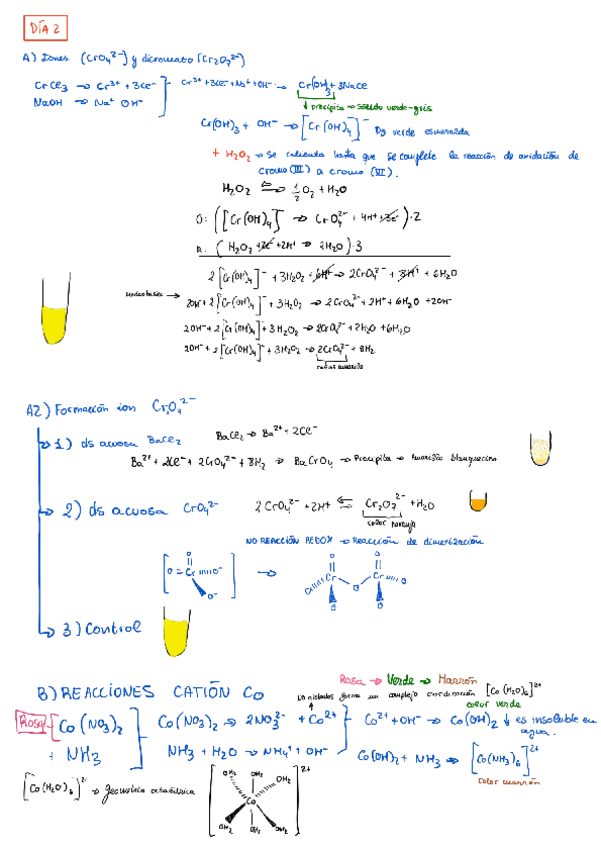 DÍA 2
A) Iones (CrO₄²⁻) y dicromato (Cr₂O₇²⁻)
CrCl₃ → Cr³⁺ + 3Cl⁻
NaOH → Na⁺ OH⁻
Cr³⁺ + 3Cl⁻ + Na⁺ + OH⁻ → Cr(OH)₃ + 3NaCl
↓ precipita → sólido verde-gris
Cr(OH)₃ + OH⁻ → [Cr(OH)₄]⁻ Ds verde esmeralda
+ H₂O₂ → se calienta hasta que se complete la reacción de oxidación de
cromo (III) a cromo (VI).
H₂O₂ ⇌ ½ O₂ + H₂O
O: ([Cr(OH)₄]⁻ → CrO₄²⁻ + 4H⁺ + 3e⁻)·2
R: (H₂O₂ + 2e⁻ + 2H⁺ → 2H₂O)·3
2[Cr(OH)₄]⁻ + 3H₂O₂ + 6H⁺ → 2CrO₄²⁻ + 8H⁺ + 6H₂O
2OH⁻ + 2[Cr(OH)₄]⁻ + 3H₂O₂ → 2CrO₄²⁻ + 2H⁺ + 6H₂O + 2OH⁻
2OH⁻ + 2[Cr(OH)₄]⁻ + 3H₂O₂ → 2CrO₄²⁻ + 2H₂O + 6H₂O
2OH⁻ + 2[Cr(OH)₄]⁻ + 3H₂O₂ → 2CrO₄²⁻ + 8H₂
A2) Formación ion Cr₂O₇²⁻
1) ds acuosa BaCl₂
BaCl₂ → Ba²⁺ + 2Cl⁻
Ba²⁺ + 2Cl⁻ + 2CrO₄²⁻ + 8H₂ → BaCrO₄ → Precipita → Amarillo blanquecino
2) ds acuosa CrO₄²⁻
2CrO₄²⁻ + 2H⁺ ⇌ Cr₂O₇²⁻ + H₂O
color naranja
NO REACCIÓN REDOX → Reacción de dimerización
O O O⁻ O⁻ Cr
→
O O O O O O O Cr Cr
3) Control
Rosa → Verde → Marrón
B) REACCIONES CATIÓN Co
forma un complejo coordinación [Co(H₂O)₆]²⁺
color verde
Rosa
Co(NO₃)₂
+ NH₃
Co(NO₃)₂ → 2NO₃²⁻ + Co²⁺
NH₃ + H₂O → NH₄⁺ + OH⁻
Co²⁺ + OH⁻ → Co(OH)₂ ↓ es insoluble en
agua.
Co(OH)₂ + NH₃ → [Co(NH₃)₆]²⁺
color marrón
[Co(H₂O)₆]²⁺ → Geometría octaédrica
OH₂ OH₂ OH₂ Co OH₂ OH₂ OH₂ 2+